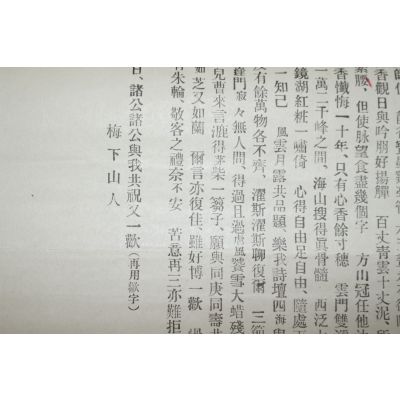 香觀日與吟朋好揚觶　百丈靑雲十丈泥、所
素腰、但使脉望食盡幾個字　方山冠任他
香懺悔一十年、只有心香餘寸穗　雲門雙
一萬二千峰之間、海山搜得眞骨髓　西泛
鏡湖紅粧一嘯倚　心得自由足自由、隨處
一知己　風雲月露共品題、樂我詩壇四海
及有餘萬物各不齊、濯斯濯斯聊復爾　三
蓬門寂々無人間、得過且過虛風饕雪大蜡殘
兒曹來言漉得茅柴一篘子、願與同庚同壽
如芝又如蘭　爾言亦復佳、雖好博一歡
有朱輪、敬客之禮奈不安　苦意再三亦難拒
日、諸公諸公與我共祝又一歡（再用歡字）
梅下山人